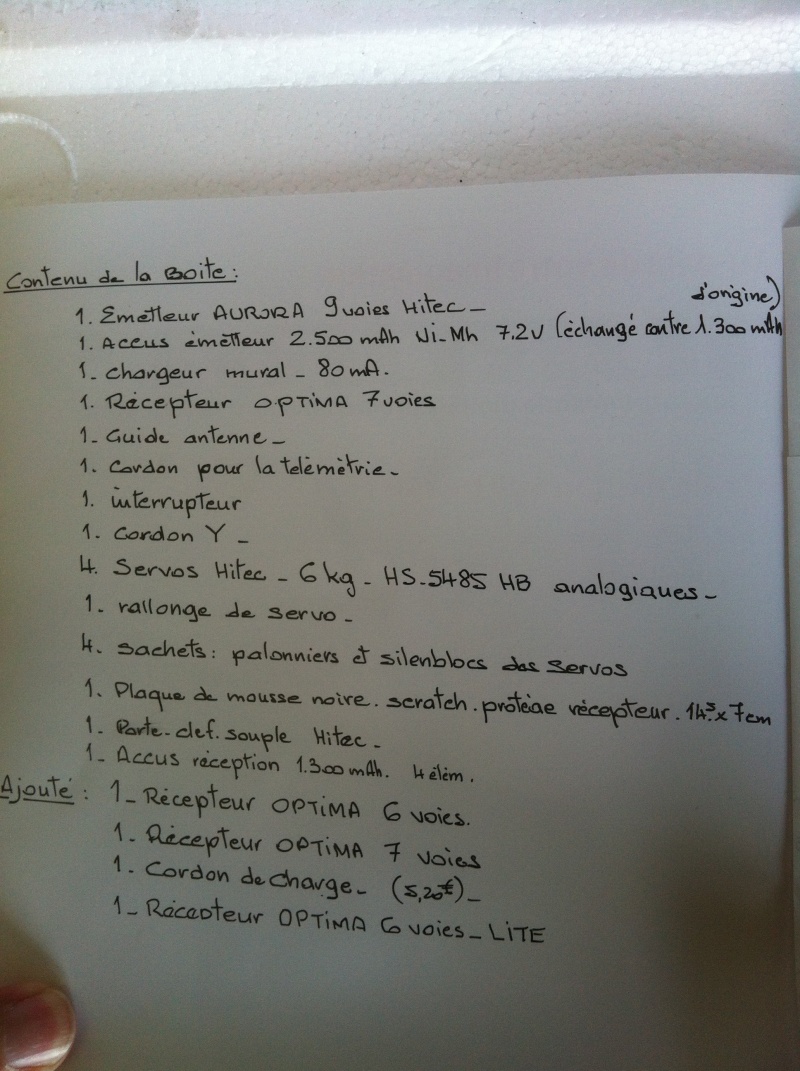 Contenu de la Boite :
1. Emetteur AURORA 9 voies Hitec _
1. Accus émetteur 2.500 mAh Ni-Mh 7.2V (échangé contre 1.300 mAh d'origine)
1_ chargeur mural _ 80 mA.
1. Récepteur OPTIMA 7 voies
1_ Guide antenne _
1. Cordon pour la télémètrie _
1. interrupteur
1. Cordon Y _
4. Servos Hitec _ 6 kg _ HS-5485 HB analogiques _
1. rallonge de servo _
4. sachets : palonniers et silenblocs des servos
1. Plaque de mousse noire. scratch. protège récepteur. 14.5 x 7 cm
1_ Porte-clef. souple Hitec _
1_ Accus réception 1.300 mAh. 4 élém.
Ajouté : 1_ Récepteur OPTIMA 6 voies.
1_ Récepteur OPTIMA 7 voies
1_ Cordon de charge _ (5,20€) _
1_ Récepteur OPTIMA 6 voies _ LiTE